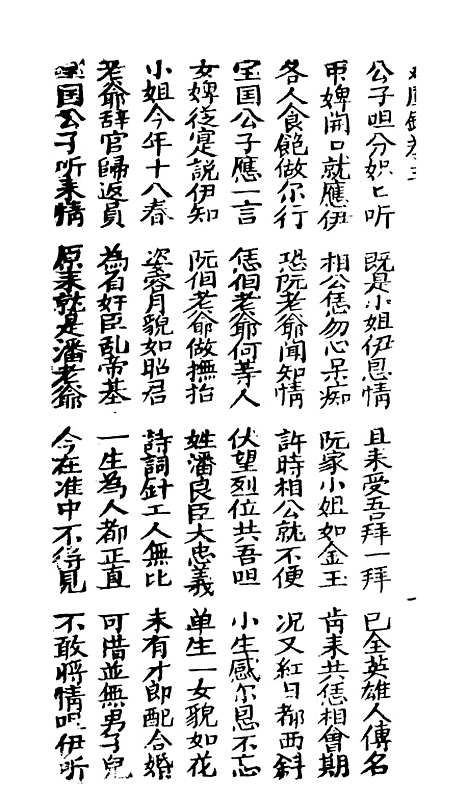 公子呾分姒匕听 既是小姐伊恩情 且来受吾拜一拜 已全英雄人傳名
甲婢開口就應伊 相公恁勿心呆痴 阮家小姐如金玉 肯来共恁相會期
各人食飽做尔行 恐阮老爺聞知情 許時相公就不便 况又紅日都西斜
宝国公子應一言 恁佪老爺何等人 伏望列位共吾呾 小生感尔恩不忘
女婢從寔說伊知 阮佪老爺做撫抬 姓潘良臣大忠義 单生一女貌如花
小姐今年十八春 姿容月貌如昭君 詩詞針工人無比 未有才郎配合婚
老爺辞官歸返員 為有奸臣乱帝基 一生為人都正直 可惜並無男子兒
宝国公子听来情 原来就是潘老爺 今在淮中不得見 不敢將情呾伊听